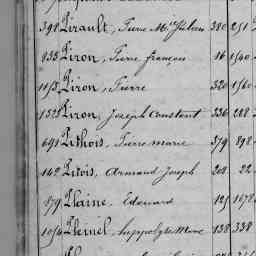 398 Pirault, Pierre Mie Julien 380 251
933 Piron, Pierre françois 16 1540
1193 Piron, Pierre 320 1560
1328 Piron, Joseph Constant 336 288
691 Pithois, Pierre marie 379 898
142 Pitois, Armand Joseph 208 22
879 Plaine, Edouard 125 1678
1054 Pleinel, hyppolyte Marie 138 338